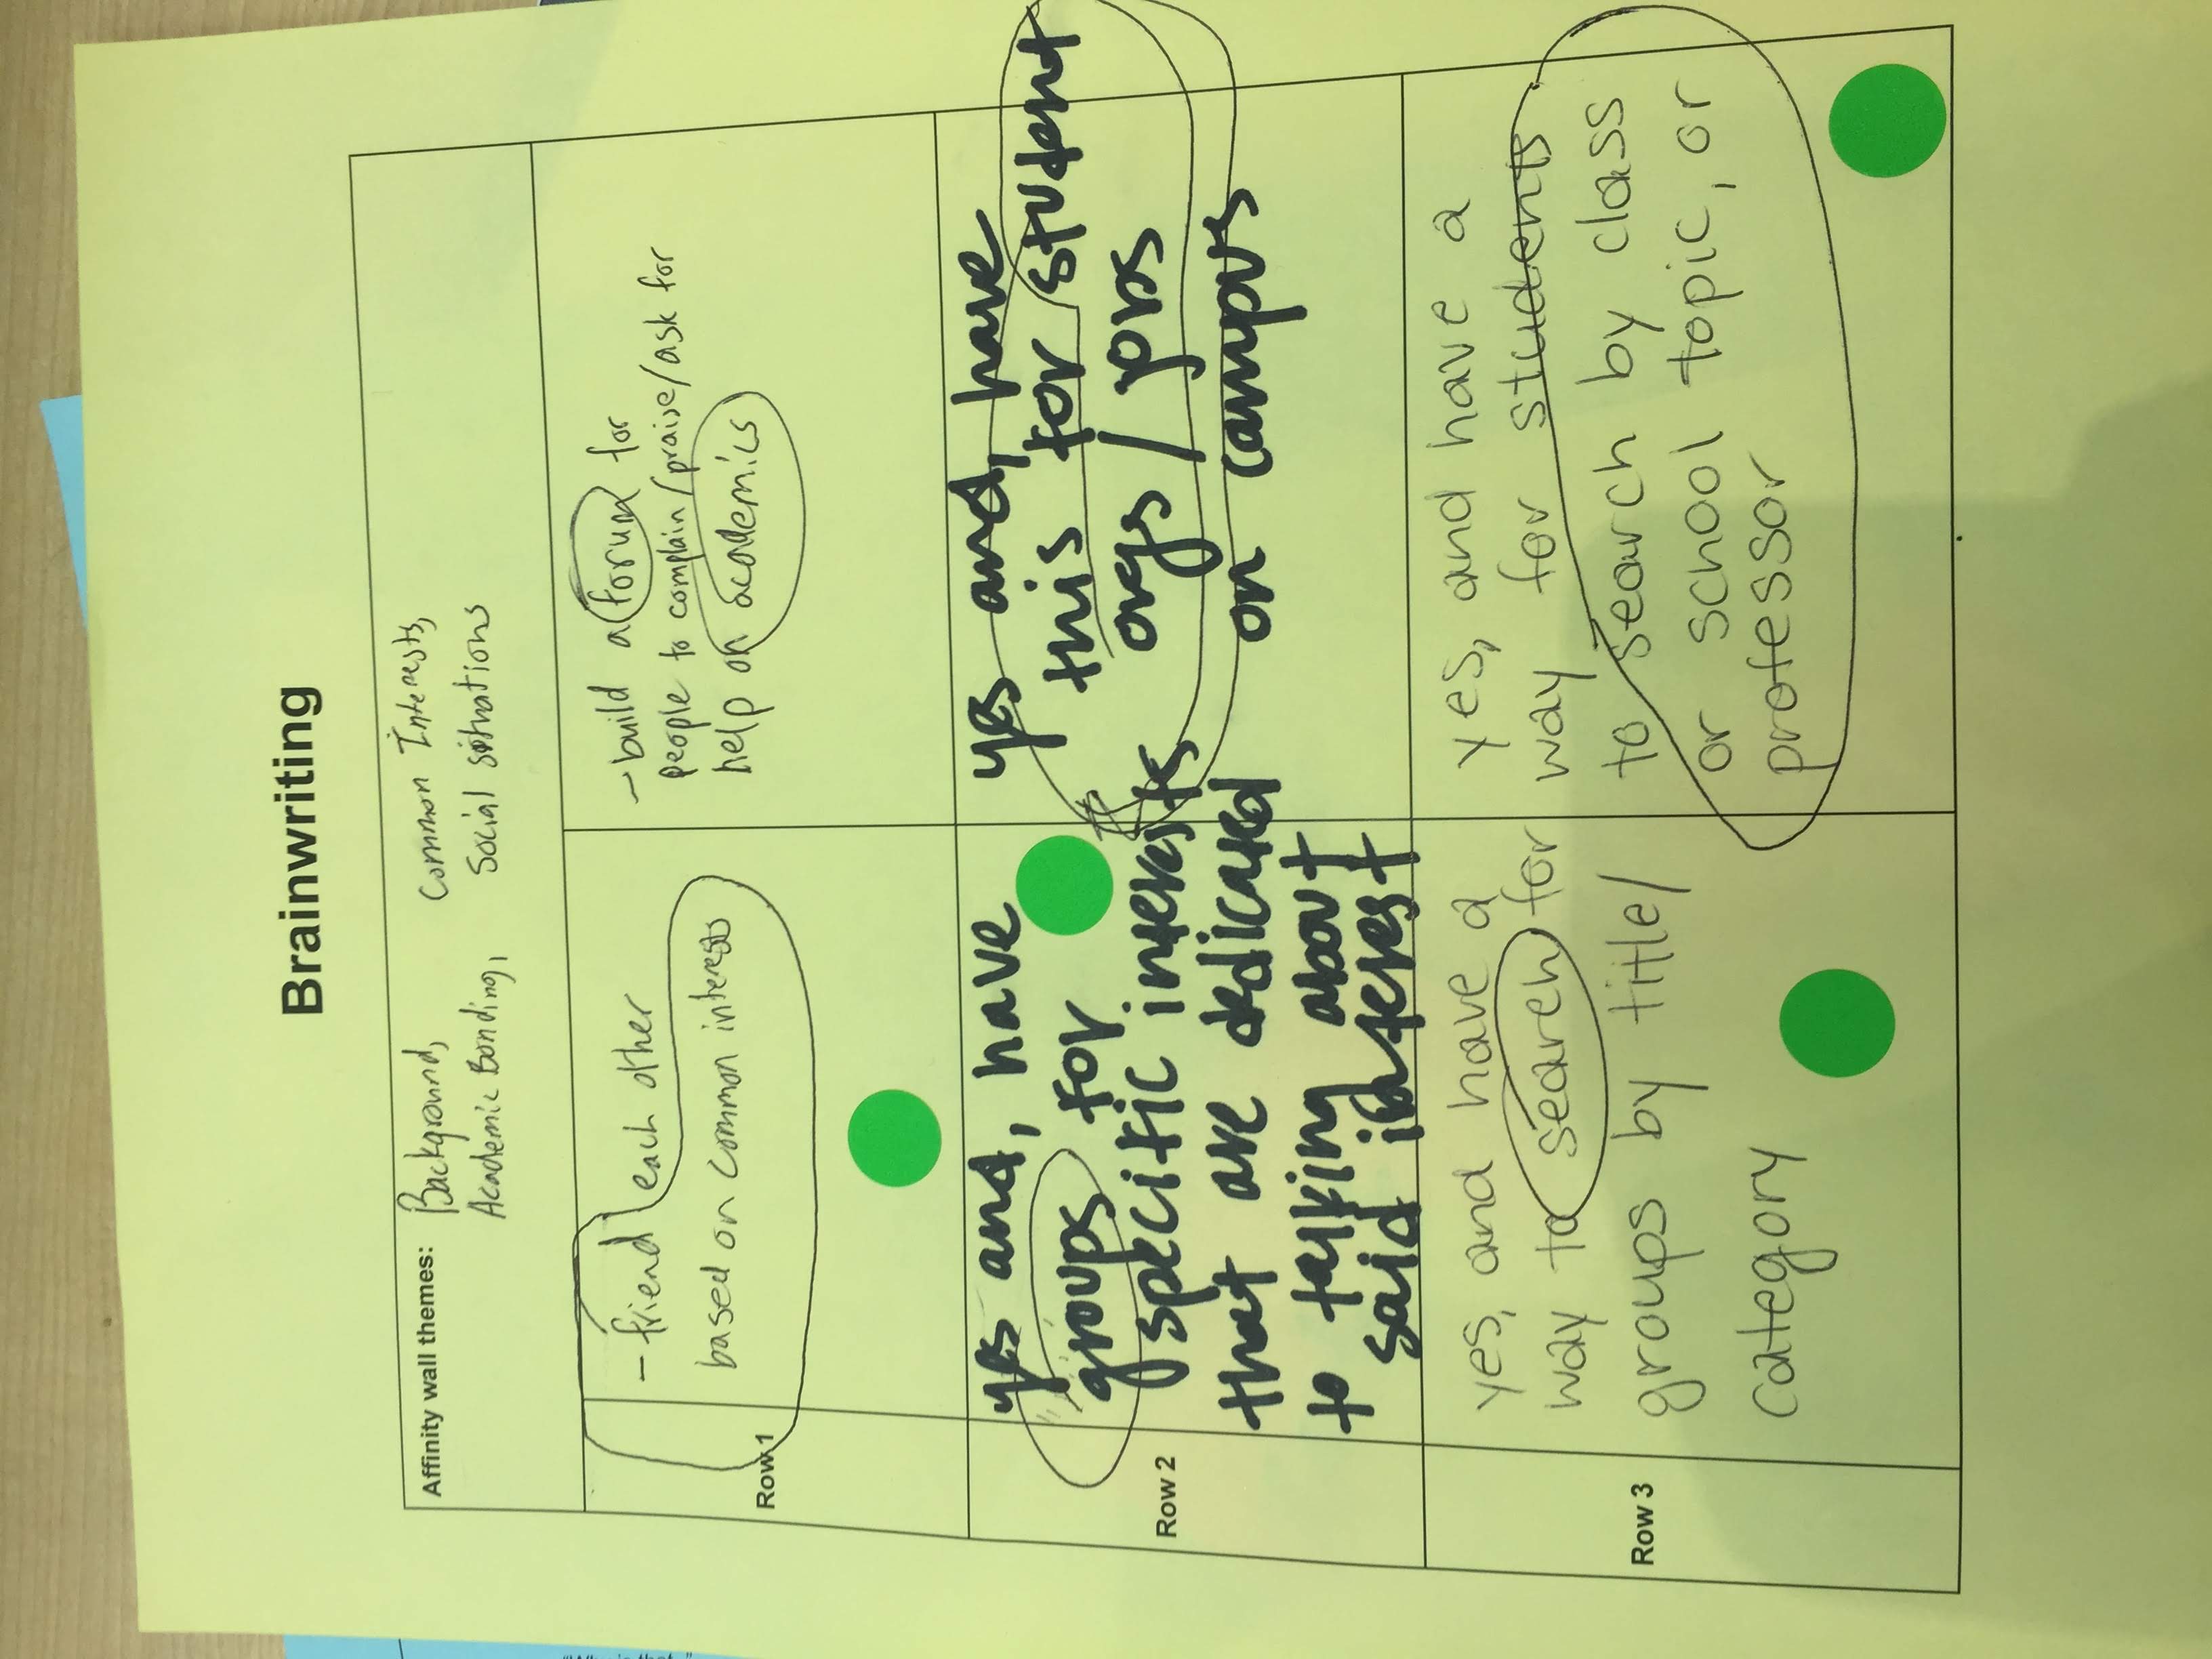 Brainwriting
Affinity wall themes: Background, Common Interests,
Academic Bonding, Social situations
Row 1
- friend each other
based on common interests
- build a forum for
people to complain/praise/ask for
help on academics
Row 2
yes and, have
groups for
specific interests
that are dedicated
to talking about
said interest
yes and, have
this for student
orgs / jobs
on campus
Row 3
yes, and have a
way to search for
groups by title/
category
yes, and have a
way for students
to search by class
or school topic, or
professor